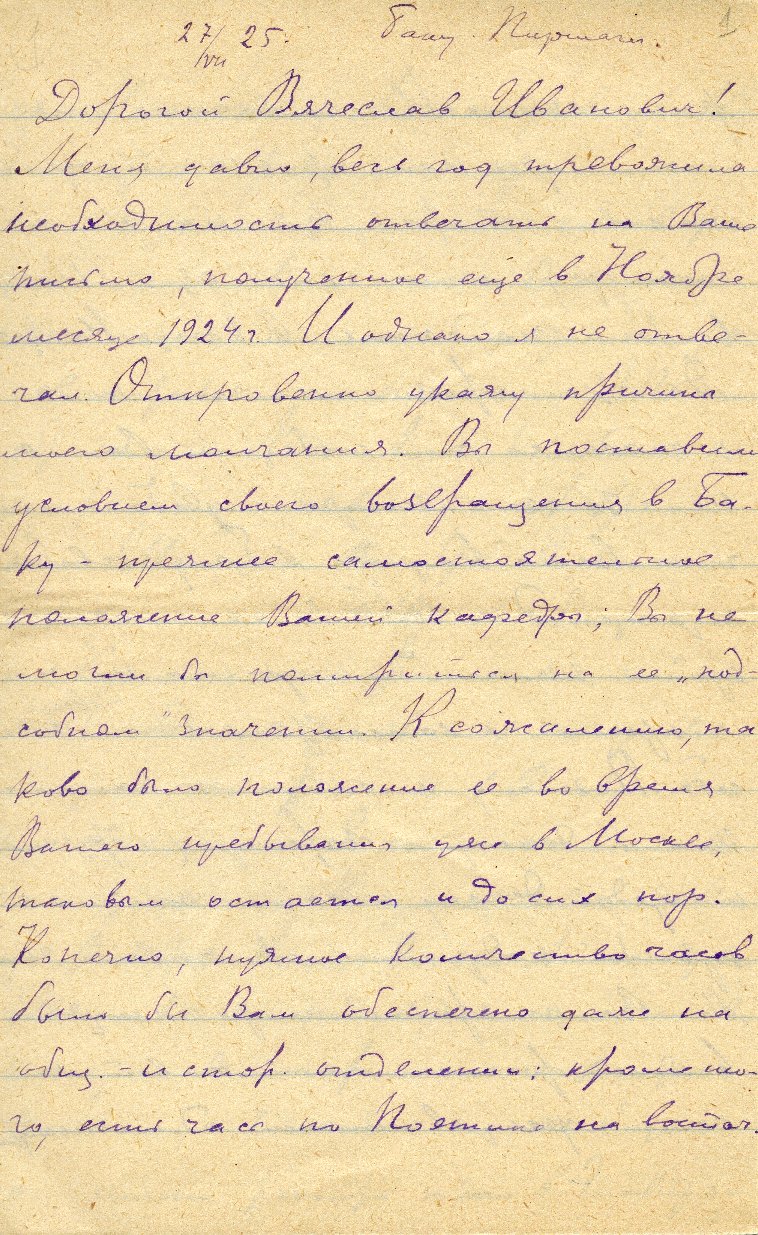 27/VII 25. Баку. Пиршаги. 1
Дорогой Вячеслав Иванович!
Меня давно, весь год тревожила
необходимость отвечать на Ваше
письмо, полученное еще в Ноябре
месяце 1924 г. И однако я не отве-
чал. Откровенно укажу причины
моего молчания. Вы поставили
условием своего возвращения в Ба-
ку - прежнее самостоятельное
положение Вашей кафедры; Вы не
могли бы помириться на ее „под-
собном" значении. К сожалению, та
ково было положение ее во время
Вашего пребывания уже в Москве,
таковым остается и до сих пор.
Конечно, нужное количество часов
было бы Вам обеспечено даже на
общ.-истор. отделении; кроме то-
го, есть часы по Поэтике на восточ.